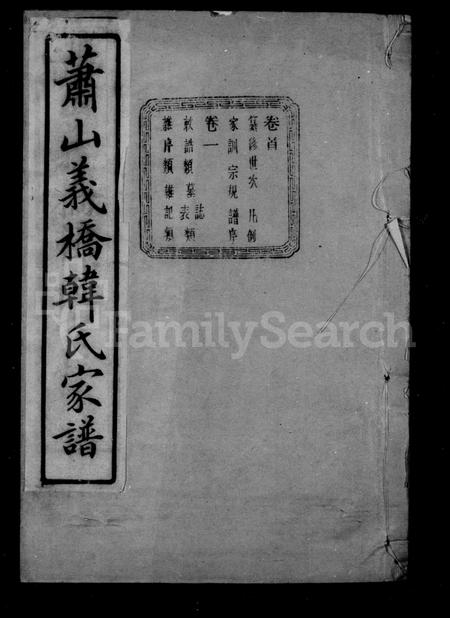 蕭山義橋韓氏家譜
卷首
纂修世次 凡例
家訓 宗規 譜序
卷一
敕誥類 墓表類
誌
雜序類 雜記類
FamilySearch